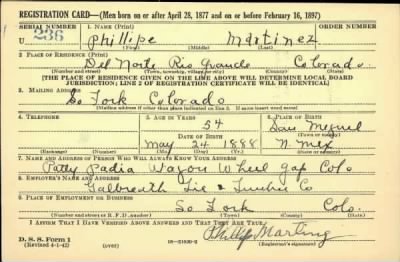 REGISTRATION CARD—(Men born on or after April 28, 1877 and on or before February 16, 1897)
SERIAL NUMBER 1. NAME (Print) ORDER NUMBER
U 236 Phillipe Martinez
(First) (Middle) (Last)
2. PLACE OF RESIDENCE (Print)
Del Norte Rio Grande Colorado
(Number and street) (Town, township, village, or city) (County) (State)
[THE PLACE OF RESIDENCE GIVEN ON THE LINE ABOVE WILL DETERMINE LOCAL BOARD
JURISDICTION; LINE 2 OF REGISTRATION CERTIFICATE WILL BE IDENTICAL]
3. MAILING ADDRESS
So Fork Colorado
[Mailing address if other than place indicated on line 2. If same insert word same]
4. TELEPHONE 5. AGE IN YEARS 6. PLACE OF BIRTH
54 San Miguel
DATE OF BIRTH (Town or county)
May 24 1888 N. Mex
(Exchange) (Number) (Mo.) (Day) (Yr.) (State or country)
7. NAME AND ADDRESS OF PERSON WHO WILL ALWAYS KNOW YOUR ADDRESS
Patty Padia Wagon Wheel Gap Colo
8. EMPLOYER'S NAME AND ADDRESS
Galbreath Tie & Co
9. PLACE OF EMPLOYMENT OR BUSINESS
So Fork Colo.
(Number and street or R. F. D. number) (Town) (County) (State)
I AFFIRM THAT I HAVE VERIFIED ABOVE ANSWERS AND THAT THEY ARE TRUE.
D. S. S. Form 1
(Revised 4-1-42) (over) 16—21630-2 (Registrant's signature)